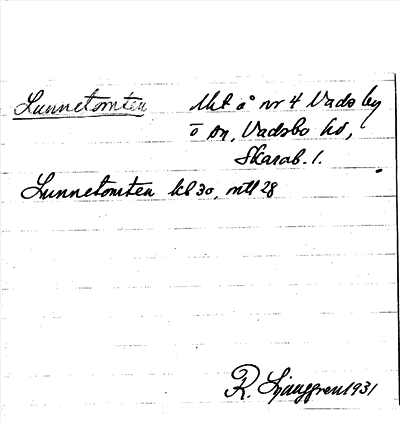 Lunnetomten
Uht å nr 4 Vads by
o sn, Vadsbo hd,
Skarab. l.
Lunnetomten kl 30, mtl 28
R. Ljunggren 1931